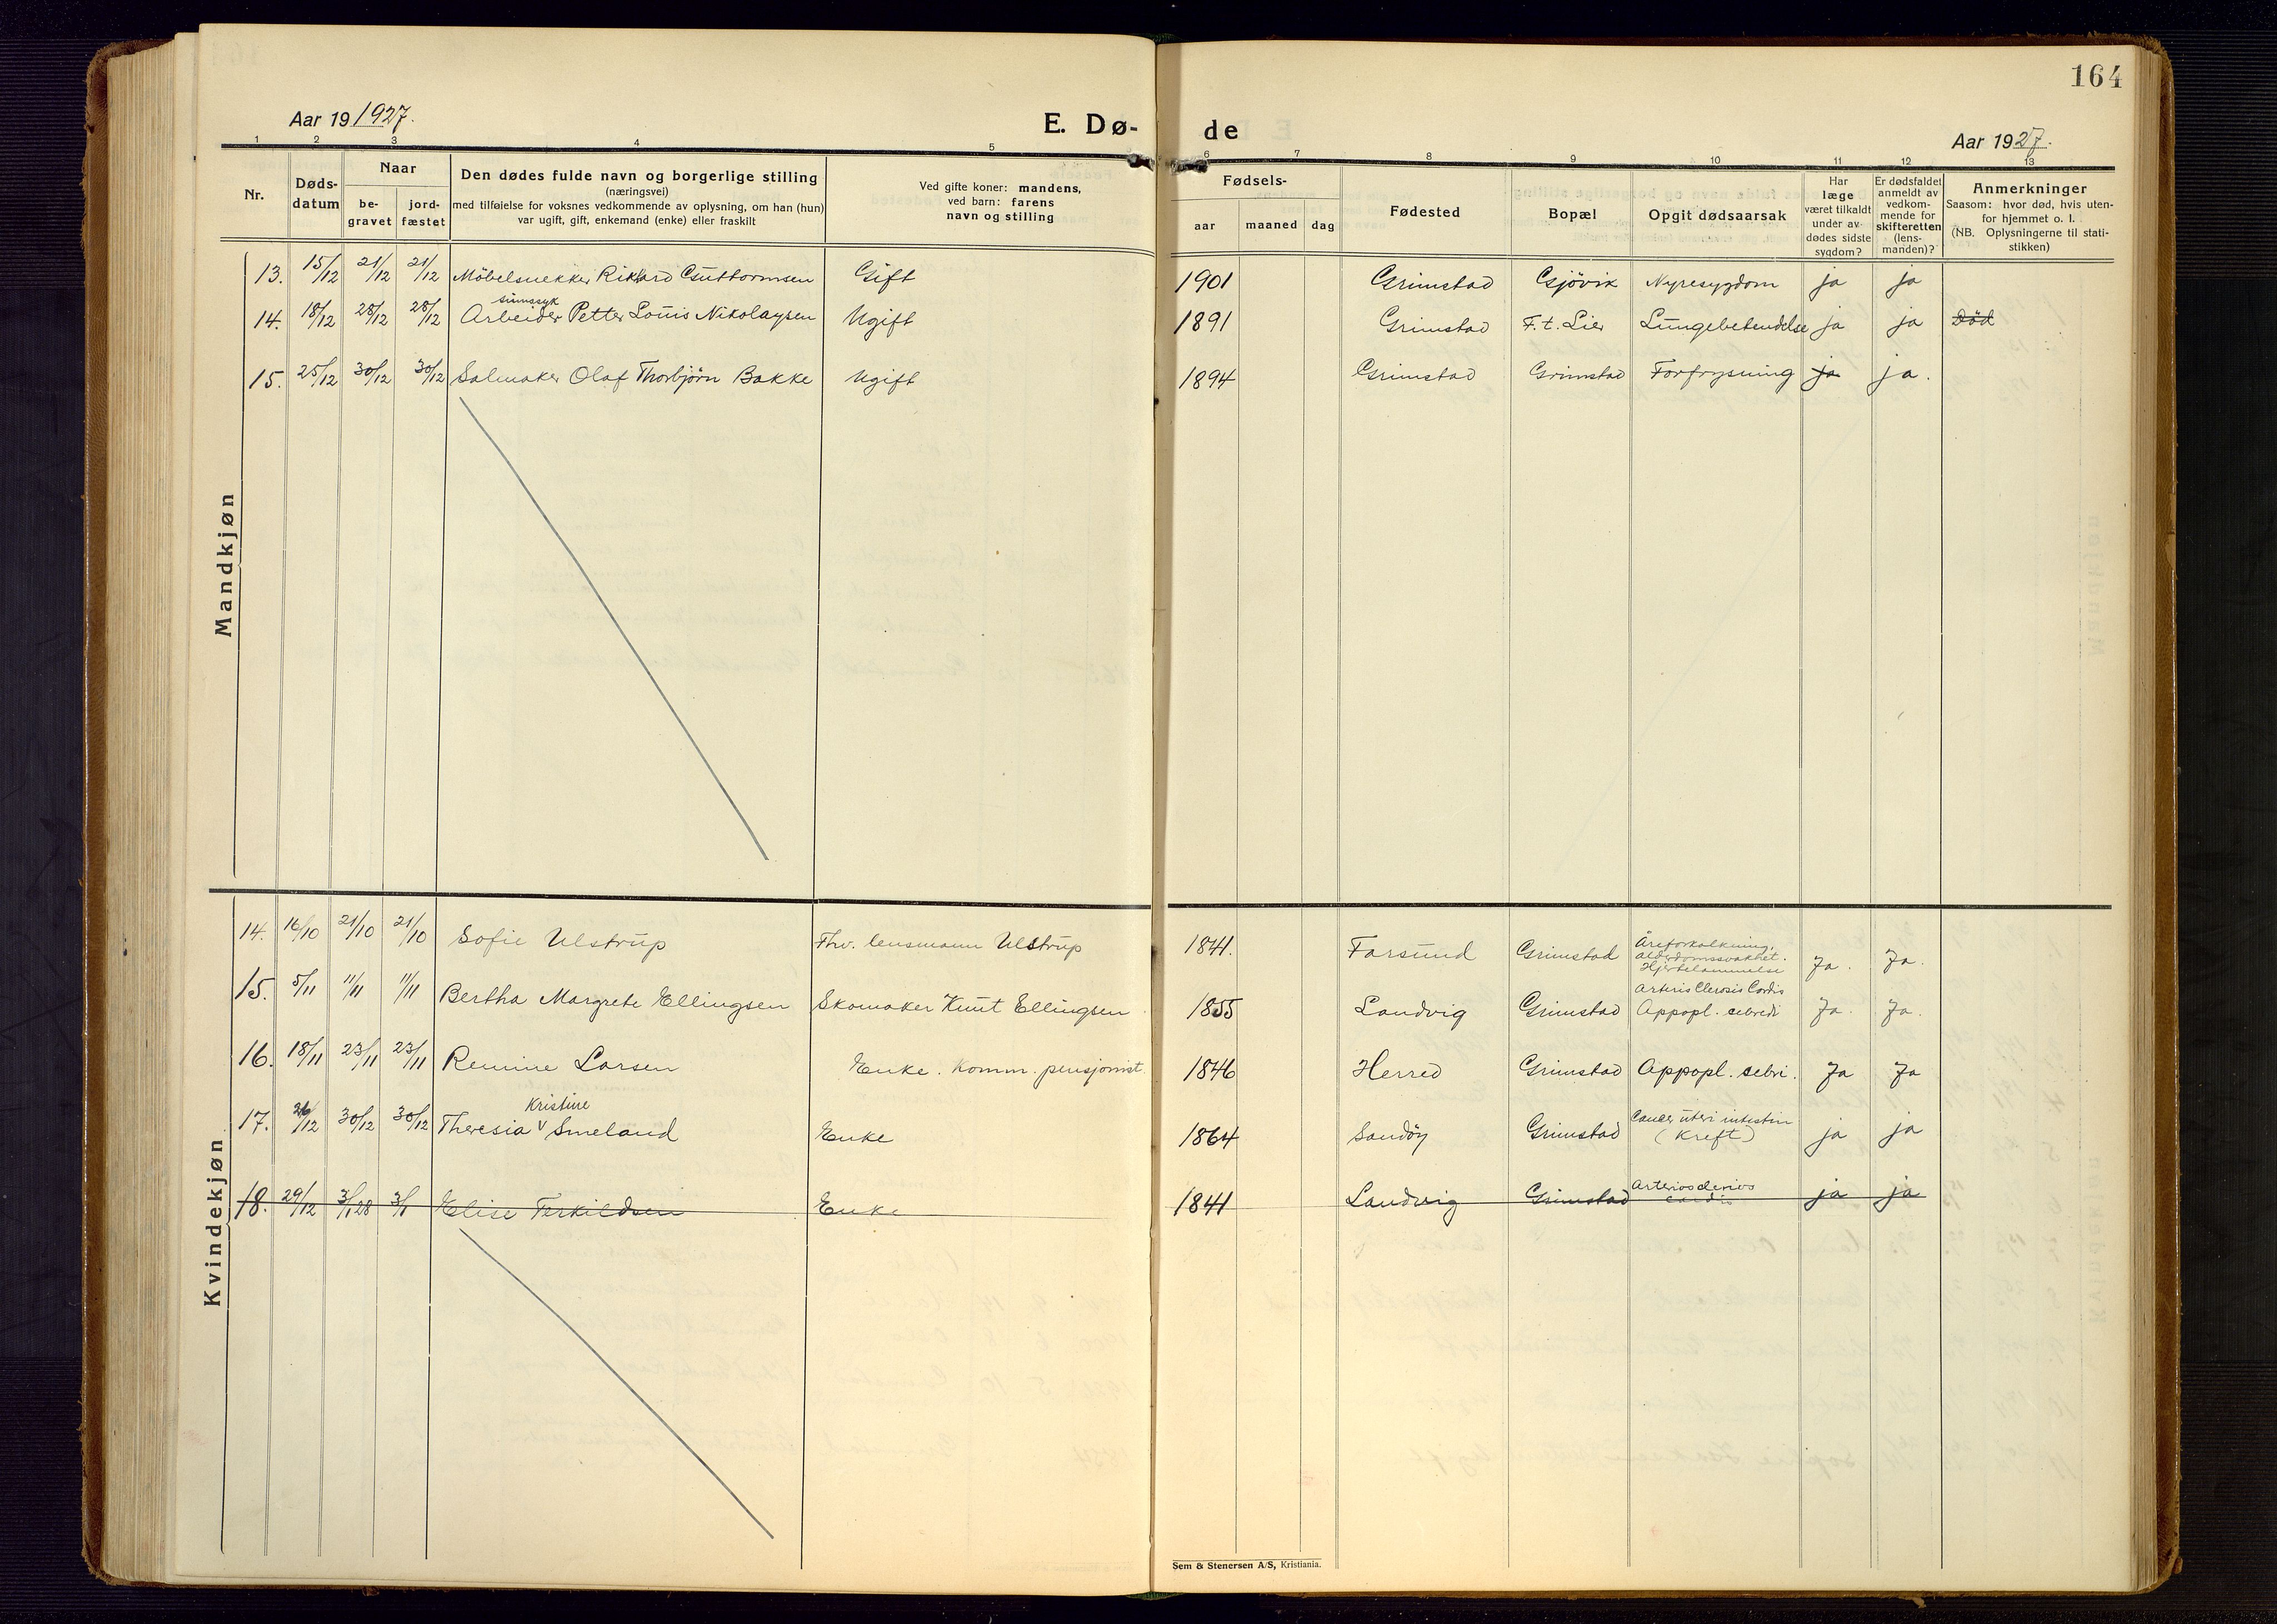 164
Aar 19 1927.
E. Dø-
de
Aar 1927.
1 2 3 4 5 6 7 8 9 10 11 12 13
Nr.
Døds-
datum
Naar
be-
gravet
jord-
fæstet
Den dødes fulde navn og borgerlige stilling
(næringsvei)
med tilføielse for voksnes vedkommende av oplysning, om han (hun)
var ugift, gift, enkemand (enke) eller fraskilt
Ved gifte koner: mandens,
ved barn: farens
navn og stilling
Fødsels-
aar
maaned
dag
Fødested
Bopæl
Opgit dødsaarsak
Har
læge
været tilkaldt
under av-
dødes sidste
sygdom?
Er dødsfaldet
anmeldt av
vedkom-
mende for
skifteretten
(lens-
manden)?
Anmerkninger
Saasom: hvor død, hvis uten-
for hjemmet o. l.
(NB. Oplysningerne til stati-
stikken)
Mandkjøn
13. 15/12 21/12 21/12 Möbelsnekker Rikard Guttormsen Gift 1901 Grimstad Gjövik Nyresygdom ja ja
sinnssyk
14. 18/12 28/12 28/12 Arbeider Petter Louis Nikolaysen Ugift 1891 Grimstad F.t. Lier Lungebetendelse ja ja Död
15. 25/12 30/12 30/12 Salmaker Olaf Thorbjörn Bakke Ugift 1894 Grimstad Grimstad Forfrysning ja ja.
Kvindekjøn
14. 16/10 21/10 21/10 Sofie Ulstrup Fhv. lensmann Ulstrup 1841. Farsund Grimstad Åreforkalkning, Alderdomssvakhet. Hjertelammelse Ja. Ja.
15. 5/11 11/11 11/11 Bertha Margrete Ellingsen Skomaker Knut Ellingsen 1855 Landvig Grimstad Arteris Clerosis Cordis Appopl. cebredi Ja. Ja.
16. 18/11 23/11 23/11 Remine Larsen Enke. Komm. pensjonist. 1846 Herred Grimstad Appopl. cebri. Ja Ja
Kristine
17. 26/12 30/12 30/12 Theresia V Smeland Enke 1864 Sandöy Grimstad Cancer uteri intestin (Kreft) ja ja
18. 29/12 3/1 28 3/1 Elise Terkildsen Enke 1841 Landvig Grimstad cordis ja ja
Sem & Stenersen A/S, Kristiania.